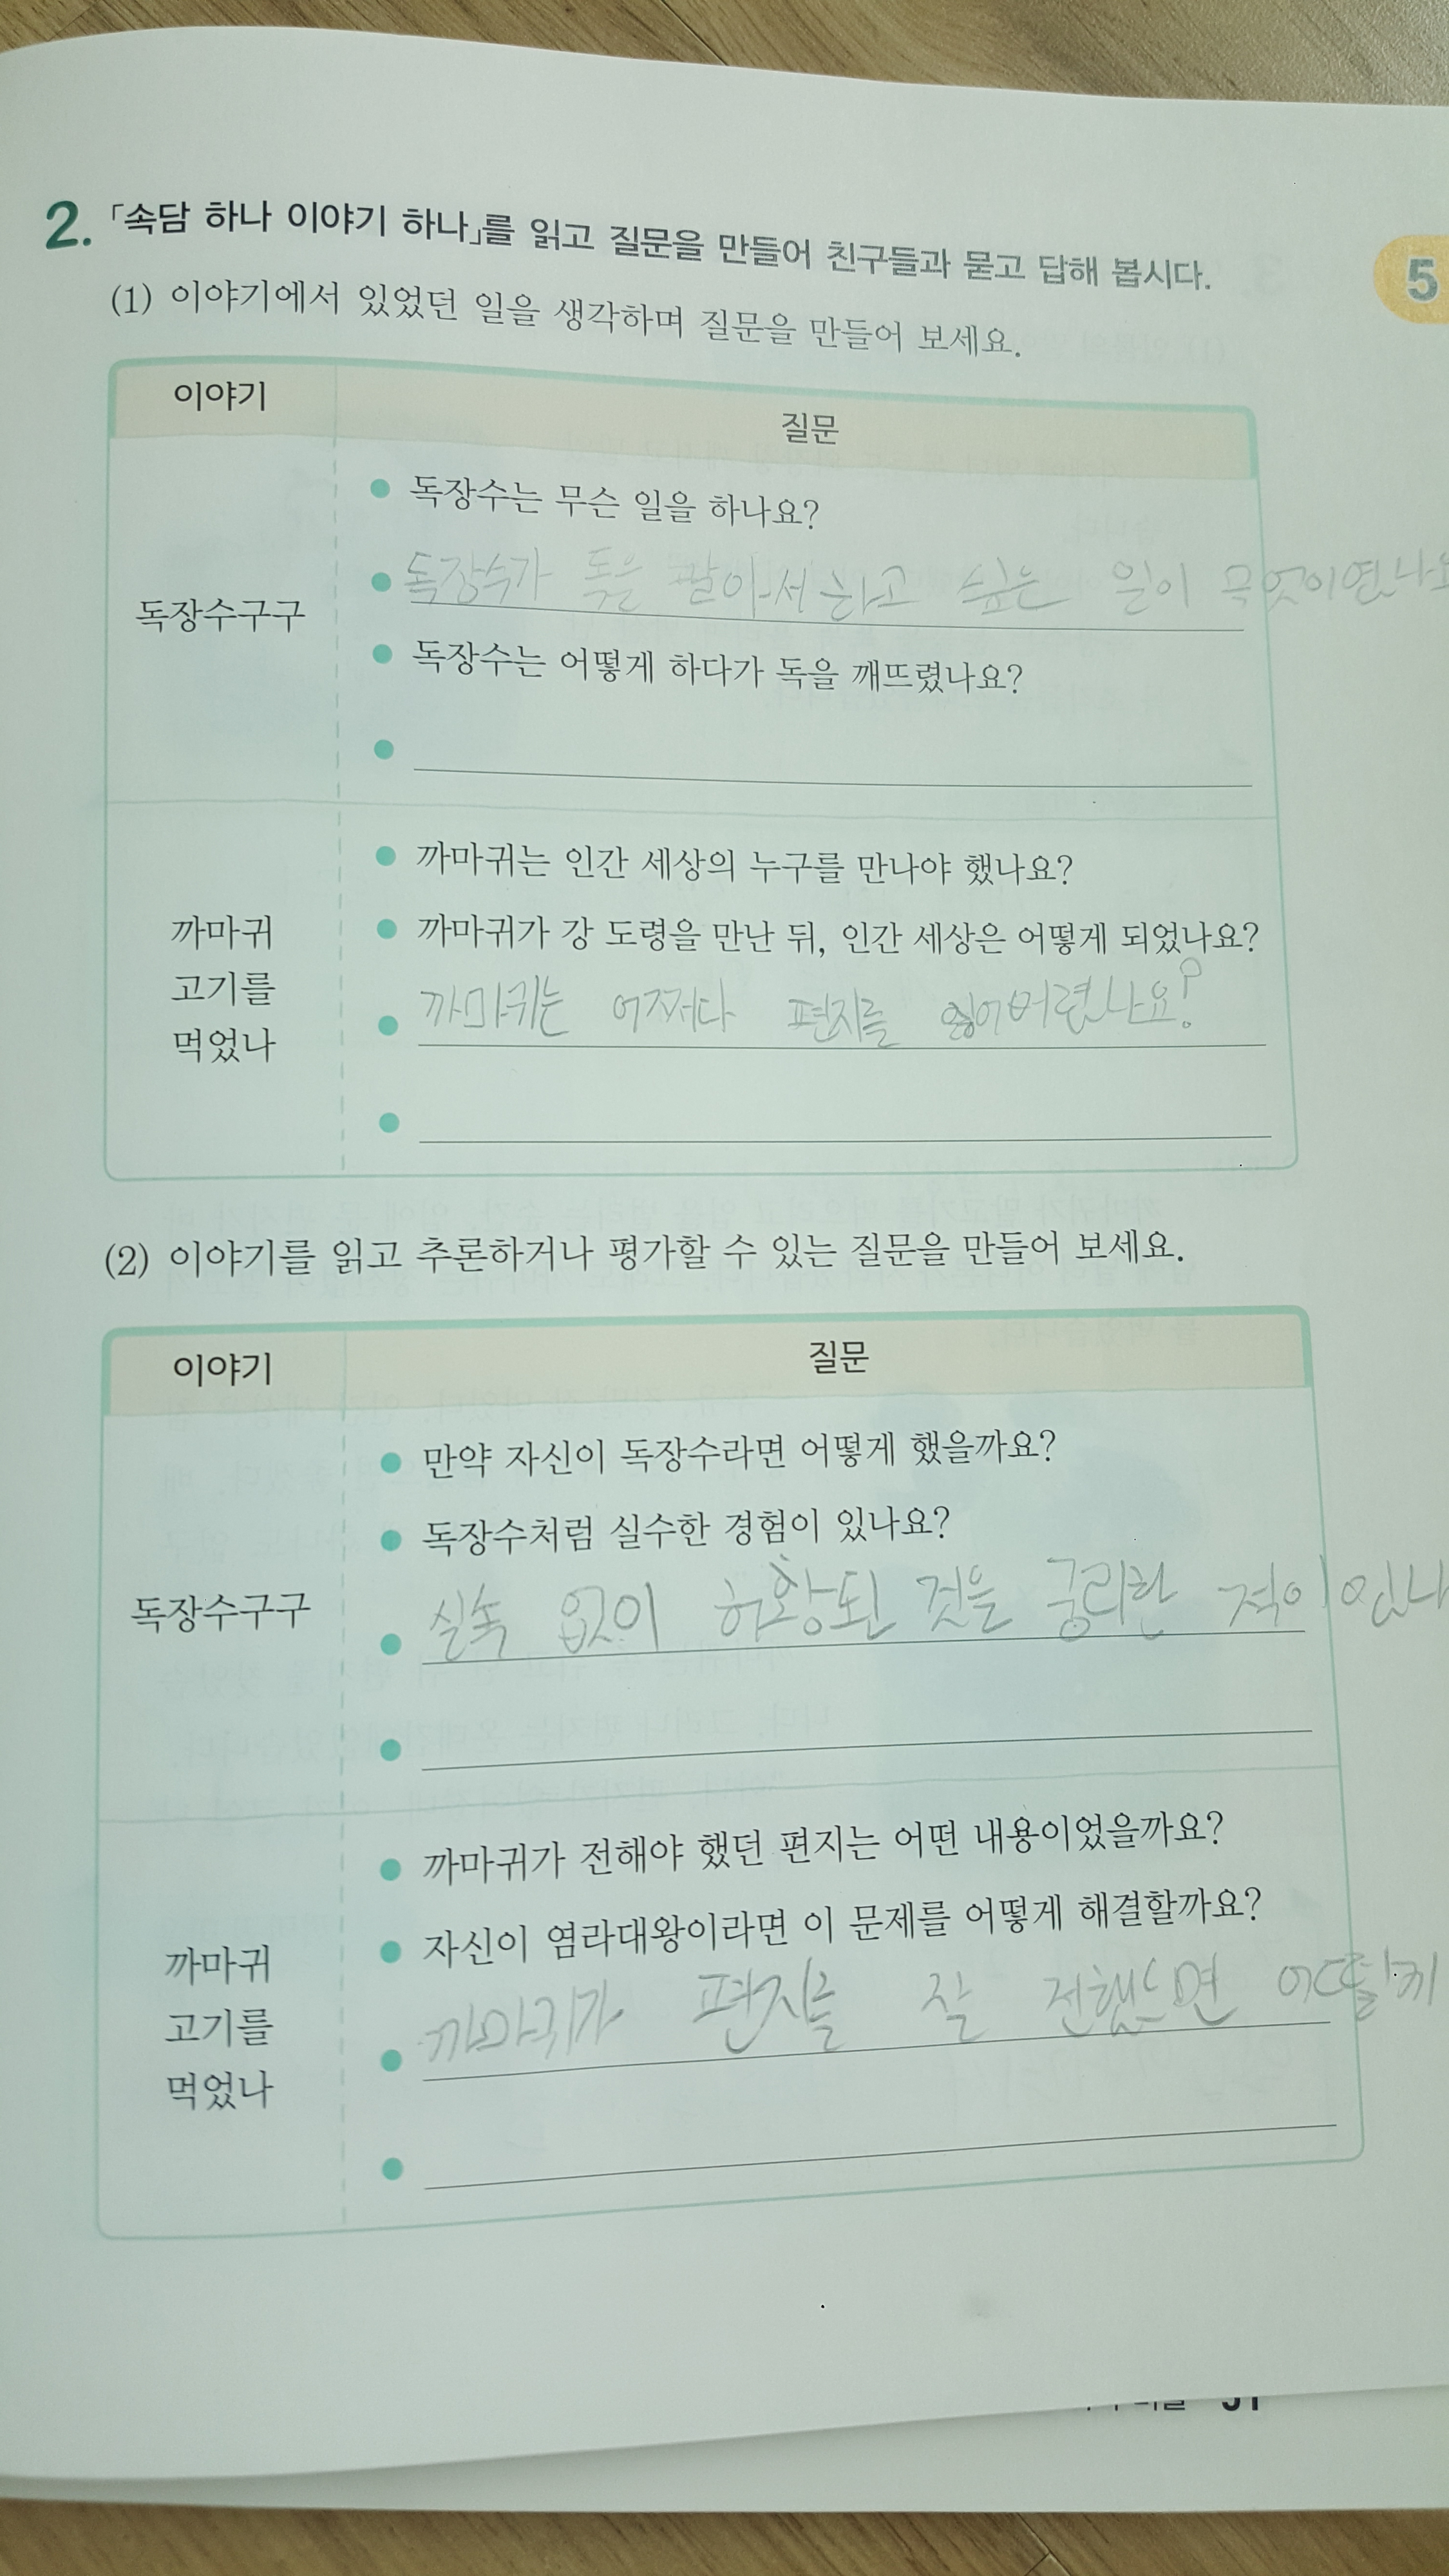 2. 「속담 하나 이야기 하나」를 읽고 질문을 만들어 친구들과 묻고 답해 봅시다.
5
(1) 이야기에서 있었던 일을 생각하며 질문을 만들어 보세요.
이야기
질문
독장수구구
독장수는 무슨 일을 하나요?
독장수가 독을 팔아서 하고 싶은 일이 무엇이였나요
독장수는 어떻게 하다가 독을 깨뜨렸나요?
까마귀
고기를
먹었나
까마귀는 인간 세상의 누구를 만나야 했나요?
까마귀가 강 도령을 만난 뒤, 인간 세상은 어떻게 되었나요?
까마귀는 어쩌다 편지를 잃어버렸나요?
(2) 이야기를 읽고 추론하거나 평가할 수 있는 질문을 만들어 보세요.
이야기
질문
독장수구구
만약 자신이 독장수라면 어떻게 했을까요?
독장수처럼 실수한 경험이 있나요?
실속 없이 허황된 것을 궁리한 적이 있나
까마귀
고기를
먹었나
까마귀가 전해야 했던 편지는 어떤 내용이었을까요?
자신이 염라대왕이라면 이 문제를 어떻게 해결할까요?
까마귀가 편지를 잘 전했으면 어떻게